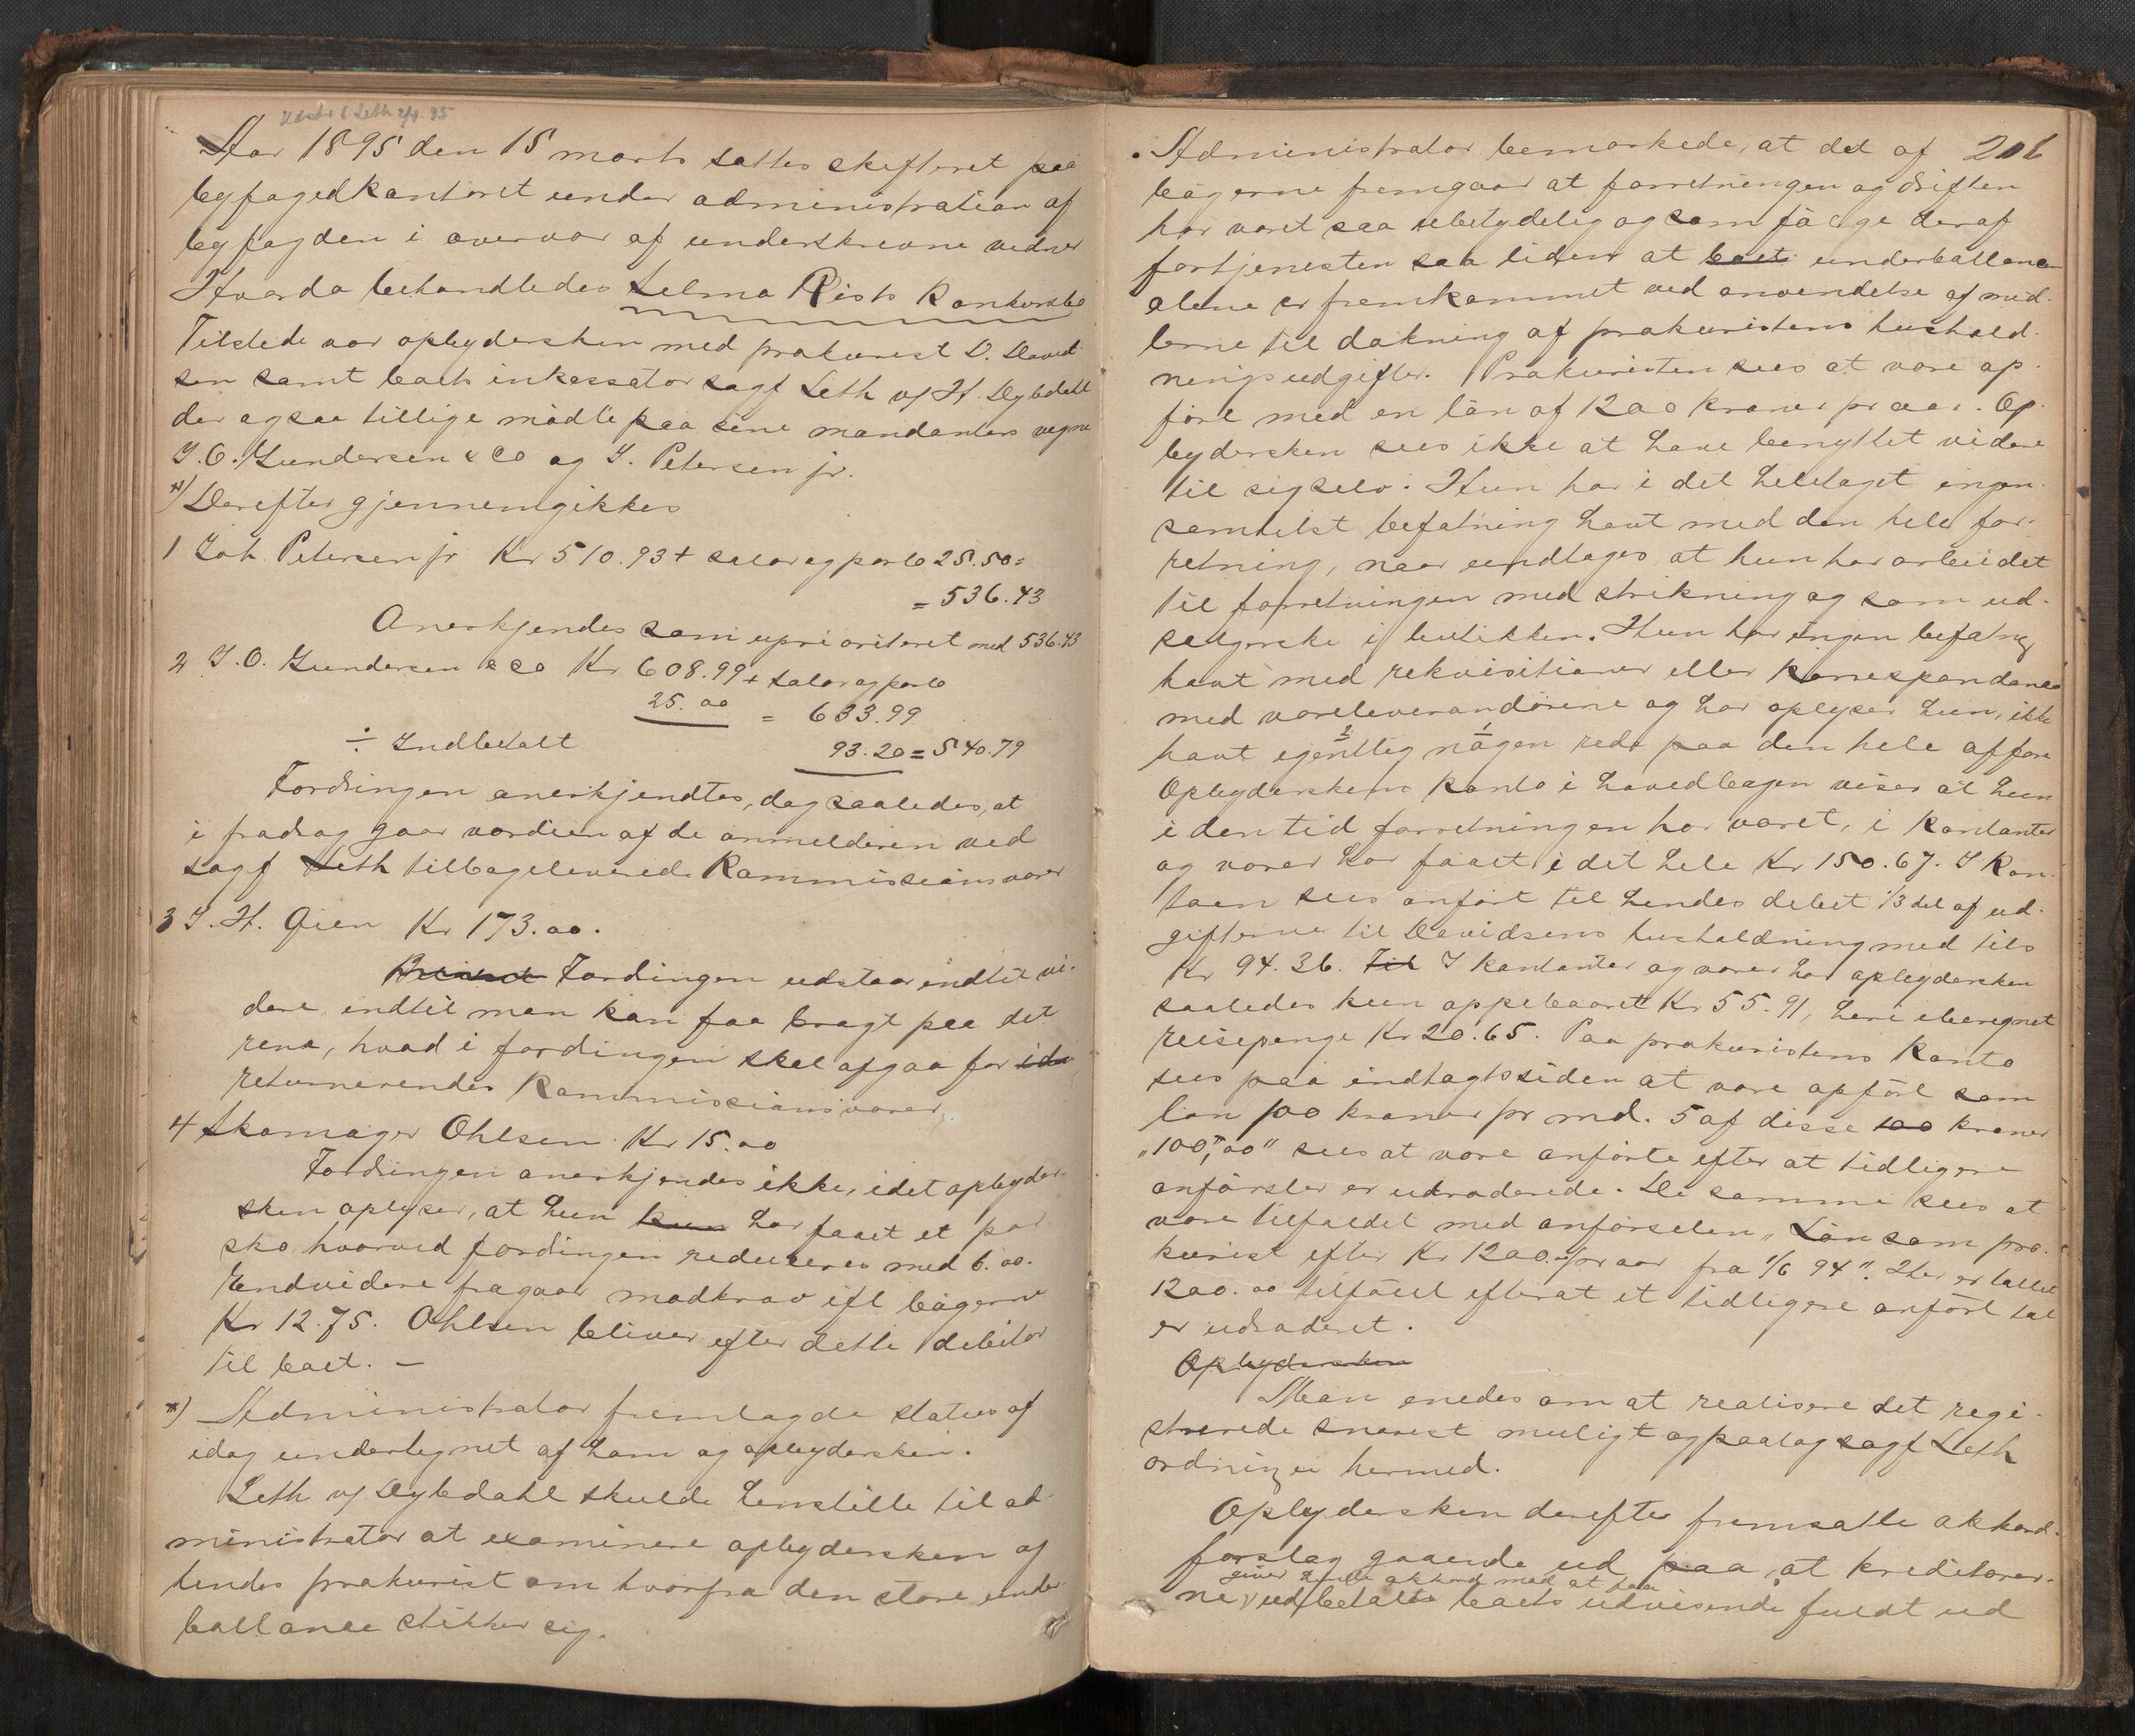 Aar 1895 den 15 marts sattes skifteret paa
byfogedkontoret under administration af
byfogden i overvær af underskrevne vidner
Hvorda behandledes Selma Rists Konkursbo
Tilstede var opbydersken med prokurist D. David-
sen samt boets inkassator sagf Leth v/ H. Dybdahl
der ogsaa tillige mødte paa sine mandanters vegne
J. O. Gundersen & Co og J. Petersen jr.
*) Derefter gjennemgikkes
1 Joh. Petersen jr Kr 510.93 + salær og porto 25.50 =
= 536.43
Anerkjendes som uprioriteret med 536.43
2 J. O. Gundersen & Co Kr 608.99 + Salær og porto
25.00 = 633.99
÷ Indbetalt 93.20 = 540.79
Fordringen anerkjendtes, dog saaledes, at
i fradrag gaar værdien af de anmelderen ved
sagf Leth tilbageleverede Kommissionsvarer
3 J. H. Gien Kr 173.00.
Fordringen udstaar indtil vi-
dere, indtil man kan faa bragt paa det
rene, hvad i fordringen skal afgaa for
returnerendes Kommissionsvarer.
4 Skomager Ohlsen Kr 15.00
Fordringen anerkjendes ikke, idet opbyder-
sken oplyser, at hun kun har faaet et par
sko, hvorved fordringen reduceres med 6.00.
Endvidere fragaar modkrav ifl bøgerne
Kr 12.75. Ohlsen bliver efter dette debitor
til boet. —
*) Administrator fremlagde status af
idag undertegnet af ham og opbydersken.
Leth v/ Dybdahl skulde henstille til ad-
ministrator at examinere opbydersken og
hendes prokurist om hvorfra den store under-
ballance skikker sig.
Administrator bemærkede, at det af 206
bøgerne fremgaar at forretningen og driften
har været saa ubetydelig og som følge deraf
fortjenesten saa liden at boets underballance
alene er fremkommet ved anvendelse af mid-
lerne til dækning af prokuristens hushold-
ningsudgifter. Prokuristen sees at være op-
ført med en løn af 1200 kroner pr aar. Op-
bydersken sees ikke at have benyttet videre
til sig selv. Hun har i det heletaget ingen-
somhelst befatning havt med den hele for-
retning, naar undtages at hun har arbeidet
til forretningen med strikning og som ud-
salgerske i butikken. Hun har ingen befatng
havt med rekvisitioner eller korrespondance
med vareleverandørerne og har oplyser hun, ikke
havt egentlig nogen rede paa den hele affære
Opbyderskens konto i hovedbogen viser at hun
i den tid forretningen har varet, i kontanter
og varer har faaet i det hele Kr 150.67. I Kon-
toen sees anført til hendes debet 1/3 del af ud-
gifterne til Davidsens husholdning med tils
Kr 94.36. Til I kontanter og varer har opbydersken
saaledes kun oppebaaret Kr 55.91, heri iberegnet
reisepenge Kr 20.65. Paa prokuristens Konto
sees paa indtægtssiden at være opført som
løn 100 kroner pr md. 5 af disse 100 kroner
„100,00" sees at være anførte efter at tidligere
anførsler er udraderede. De samme sees at
være tilfældet med anførselen „Løn som pro-
kurist efter Kr 1200.- pr aar fra 1/6 94". Her er tallet
1200.00 tilføiet efterat et tidligere anført tal
er udraderet.
Opbydersken
Man enedes om at realisere det regi-
strerede snarest muligt og paatog sagf Leth
ordningen hermed.
Opbydersken derefter fremsatte akkord-
forslag gaaende ud paa, at kreditorer-
ne udbetales boets udvisende fuldt ud